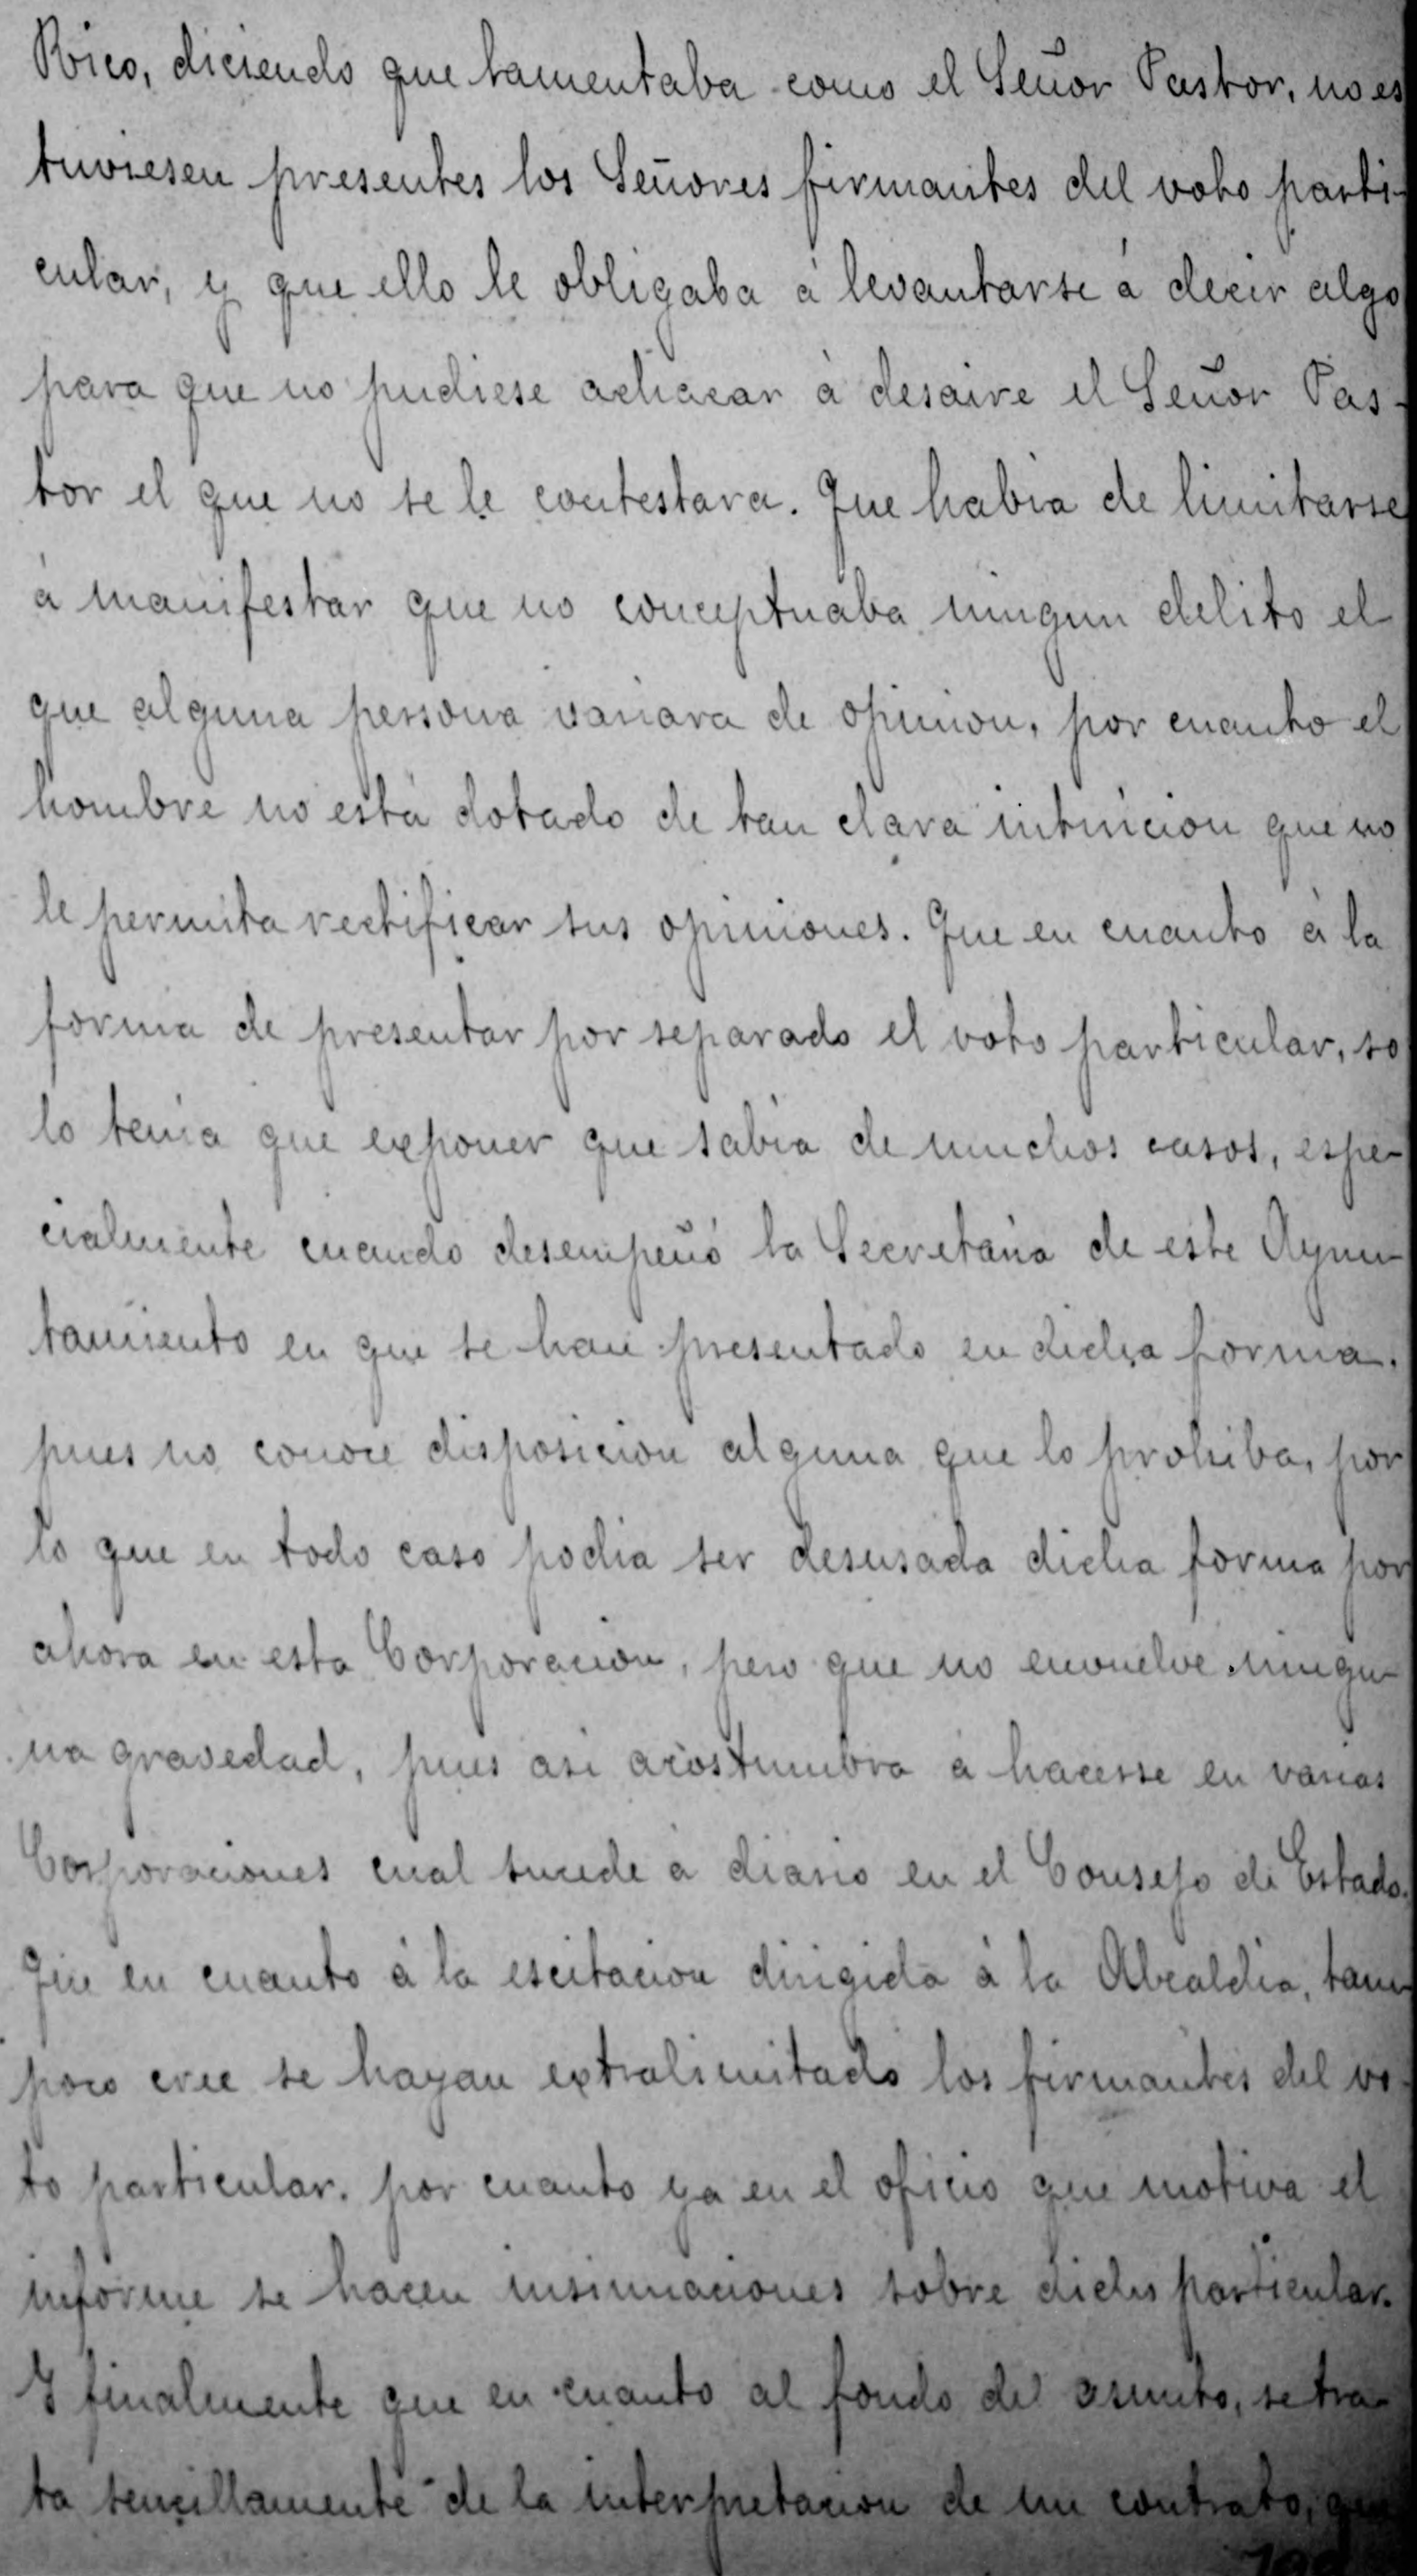 Rico, diciendo que lamentaba como el Señor Pastor, no es
tuviesen presentes los Señores firmantes del voto parti-
cular, y que ello le obligaba á levantarse á decir algo
para que no pudiese achacar á desaire el Señor Pas-
tor el que no se le contestara. Que habia de limitarse
á manifestar que no conceptuaba ningun delito el
que alguna persona variara de opinion, por cuanto el
hombre no está dotado de tan clara intuicion que no
le permita rectificar sus opiniones. Que en cuanto á la
forma de presentar por separado el voto particular, so
lo tenia que exponer que sabia de muchos casos, espe-
cialmente cuando desempeñó la Secretaria de este Ayun-
tamiento en que se han presentado en dicha forma.
pues no conoce disposicion alguna que lo prohiba, por
lo que en todo caso podia ser desusada dicha forma por
ahora en esta Corporacion, pero que no envuelve ningu-
na gravedad, pues asi acostumbra á hacerse en varias
Corporaciones cual sucede á diario en el Consejo de Estado.
Que en cuanto á la escitacion dirigida á la Alcaldia, tam-
poco cree se hayan extralimitado los firmantes del vo-
to particular. por cuanto ya en el oficio que motiva el
informe se hacen insinuaciones sobre dicho particular.
Y finalmente que en cuanto al fondo del asunto, se tra-
ta sencillamente de la interpretacion de un contrato, que